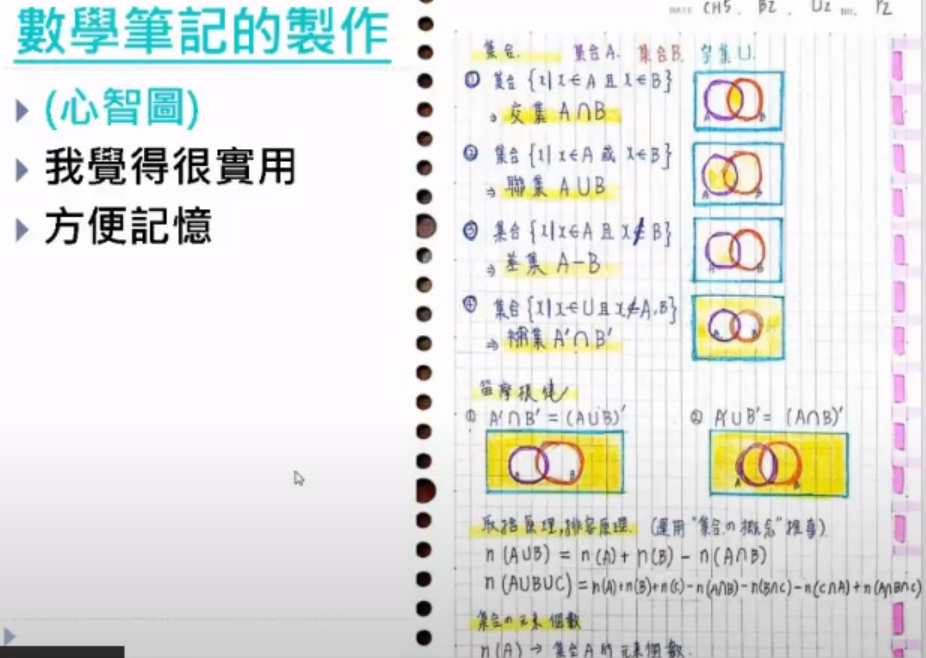 數學筆記的製作
(心智圖)
我覺得很實用
方便記憶
DATE CH5. B2. U2 NO. P2
集合. 集合A. 集合B. 宇集U.
① 集合 {x|x∈A 且 x∈B}
⇒ 交集 A∩B
② 集合 {x|x∈A 或 x∈B}
⇒ 聯集 A∪B
③ 集合 {x|x∈A 且 x∉B}
⇒ 差集 A-B
④ 集合 {x|x∈U 且 x∉A,B}
⇒ 補集 A'∩B'
笛摩根律
① A'∩B' = (A∪B)'
② A'∪B' = (A∩B)'
取捨原理,排容原理. (運用"集合の概念"推導)
n (A∪B) = n(A) + n(B) - n(A∩B)
n (A∪B∪C) = n(A)+n(B)+n(C)-n(A∩B)-n(B∩C)-n(C∩A)+n(A∩B∩C)
集合の元素個數
n(A) → 集合A的元素個數.